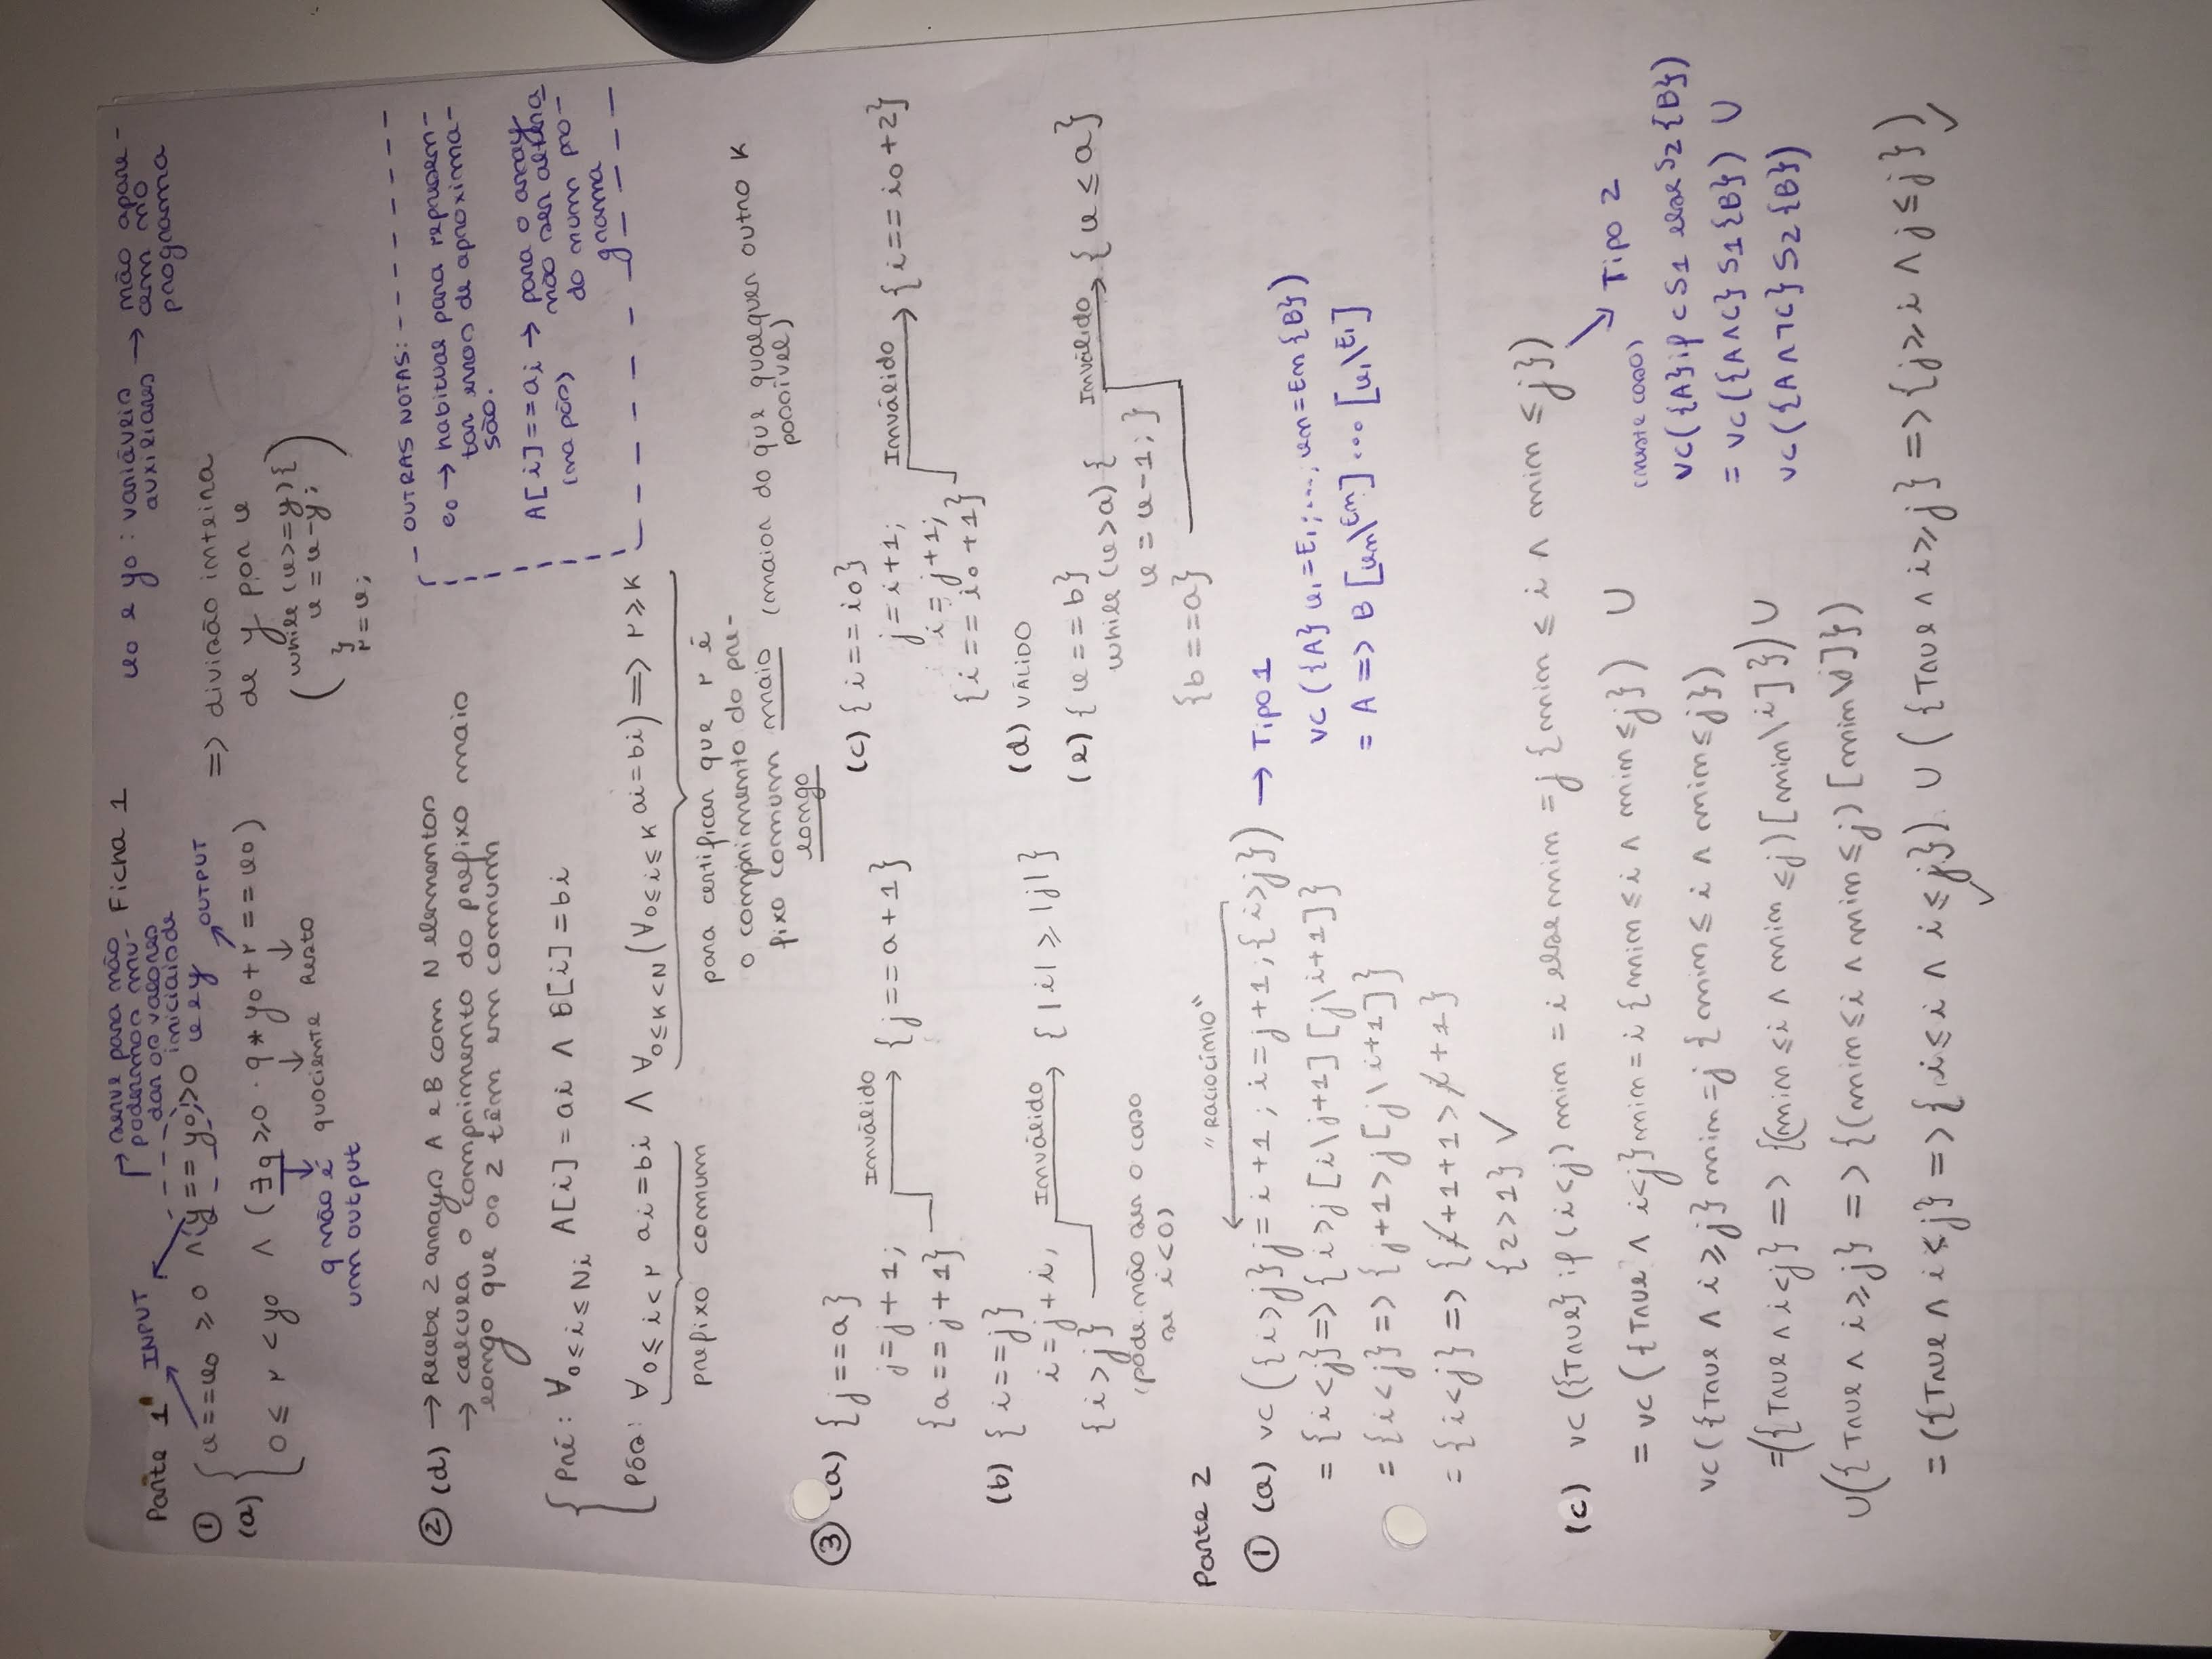 Ficha 1
Parte 1
INPUT
serve para não
podermos mu-
dar os valores
iniciais de
x e y
x0 e y0 : variáveis
auxiliares → não apare-
cem no
programa
① (a) { x==x0 ≥ 0 ∧ (y == y0) > 0
OUTPUT
0 ≤ r < y0 ∧ (∃q ≥ 0 · q * y0 + r == x0)
q não é
um output
quociente
Resto
=> divisão inteira
de y por x
( while (x>=y) {
x = x-y;
}
r = x; )
② (d) → Recebe 2 arrays A e B com N elementos
→ calcula o comprimento do prefixo mais
longo que os 2 têm em comum
Pré: ∀0≤i≤Ni A[i] = ai ∧ B[i] = bi
Pós: ∀0≤i<r ai = bi ∧ ∀0≤K<N (∀0≤i≤K ai = bi) => r ≥ K
prefixo comum
para certificar que r é
o comprimento do pre-
fixo comum mais (maior do que qualquer outro K
longo
possível)
OUTRAS NOTAS:
e0 → habitual para represen-
tar erros de aproxima-
são.
A[i]==ai → para o array
(na pós) não ser altera
do num pro-
grama
③ (a) {j==a}
j=j+1;
{a==j+1}
Inválido
{j==a+1}
(b) {i==j}
i=j+i;
{i>j}
Inválido
{|i| ≥ |j|}
(pode não ser o caso
se i<0)
(c) {i==i0}
j=i+1;
i=j+1;
{i==i0+1}
Inválido
{i==i0+2}
(d) VÁLIDO
(e) {x==b}
while (x>a) {
x = x-1; }
{b==a}
Inválido
{x ≤ a}
Parte 2
"RACIOCÍNIO"
① (a) VC({i>j} j=i+1; i=j+1; {i>j}) → Tipo 1
= {i<j} => {i>j [i\j+1] [j\i+1]}
= {i<j} => {j+1>j [j\i+1]}
= {i<j} => {i+1+1>i+1}
{2>1} ✓
VC({A} x1=E1; ..., xn=En {B})
= A => B [xn\En] ... [x1\E1]
(c) VC({True} if (i<j) min = i else min = j {min ≤ i ∧ min ≤ j})
= VC({True ∧ i<j} min = i {min ≤ i ∧ min ≤ j}) ∪
VC({True ∧ i≥j} min = j {min ≤ i ∧ min ≤ j})
= ({True ∧ i<j} => {(min ≤ i ∧ min ≤ j) [min\i]}) ∪
∪ ({True ∧ i≥j} => {(min ≤ i ∧ min ≤ j) [min\j]})
= ({True ∧ i≤j} => {i≤i ∧ i≤j}) ∪ ({True ∧ i≥j} => {j≥i ∧ j≤j})
✓
✓
Tipo 2
(neste caso)
VC({A} if c S1 else S2 {B})
= VC({A∧C} S1 {B}) ∪
VC({A∧¬C} S2 {B})